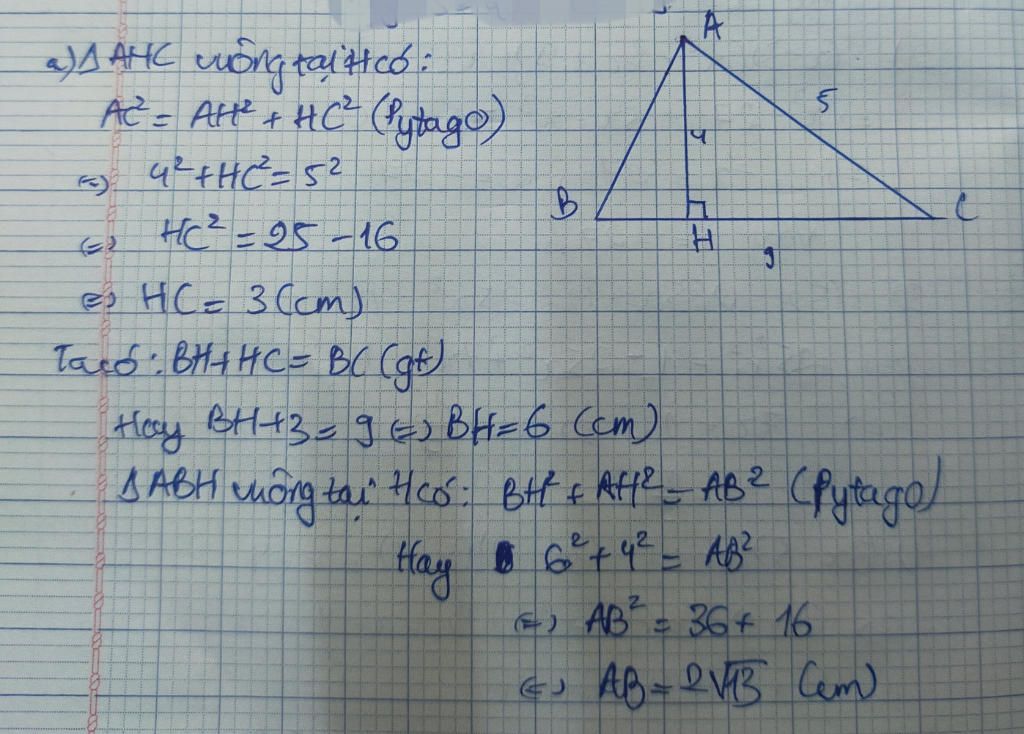 a) Δ AHC vuông tại H có:
AC² = AH² + HC² (Pytago)
⇔ 4² + HC² = 5²
⇔ HC² = 25 - 16
⇔ HC = 3 (cm)
Ta có: BH + HC = BC (gt)
Hay BH + 3 = 9 ⇔ BH = 6 (cm)
Δ ABH vuông tại H có: BH² + AH² = AB² (Pytago)
Hay 6² + 4² = AB²
⇔ AB² = 36 + 16
⇔ AB = 2√13 (cm)
A
5
4
B
C
H
9